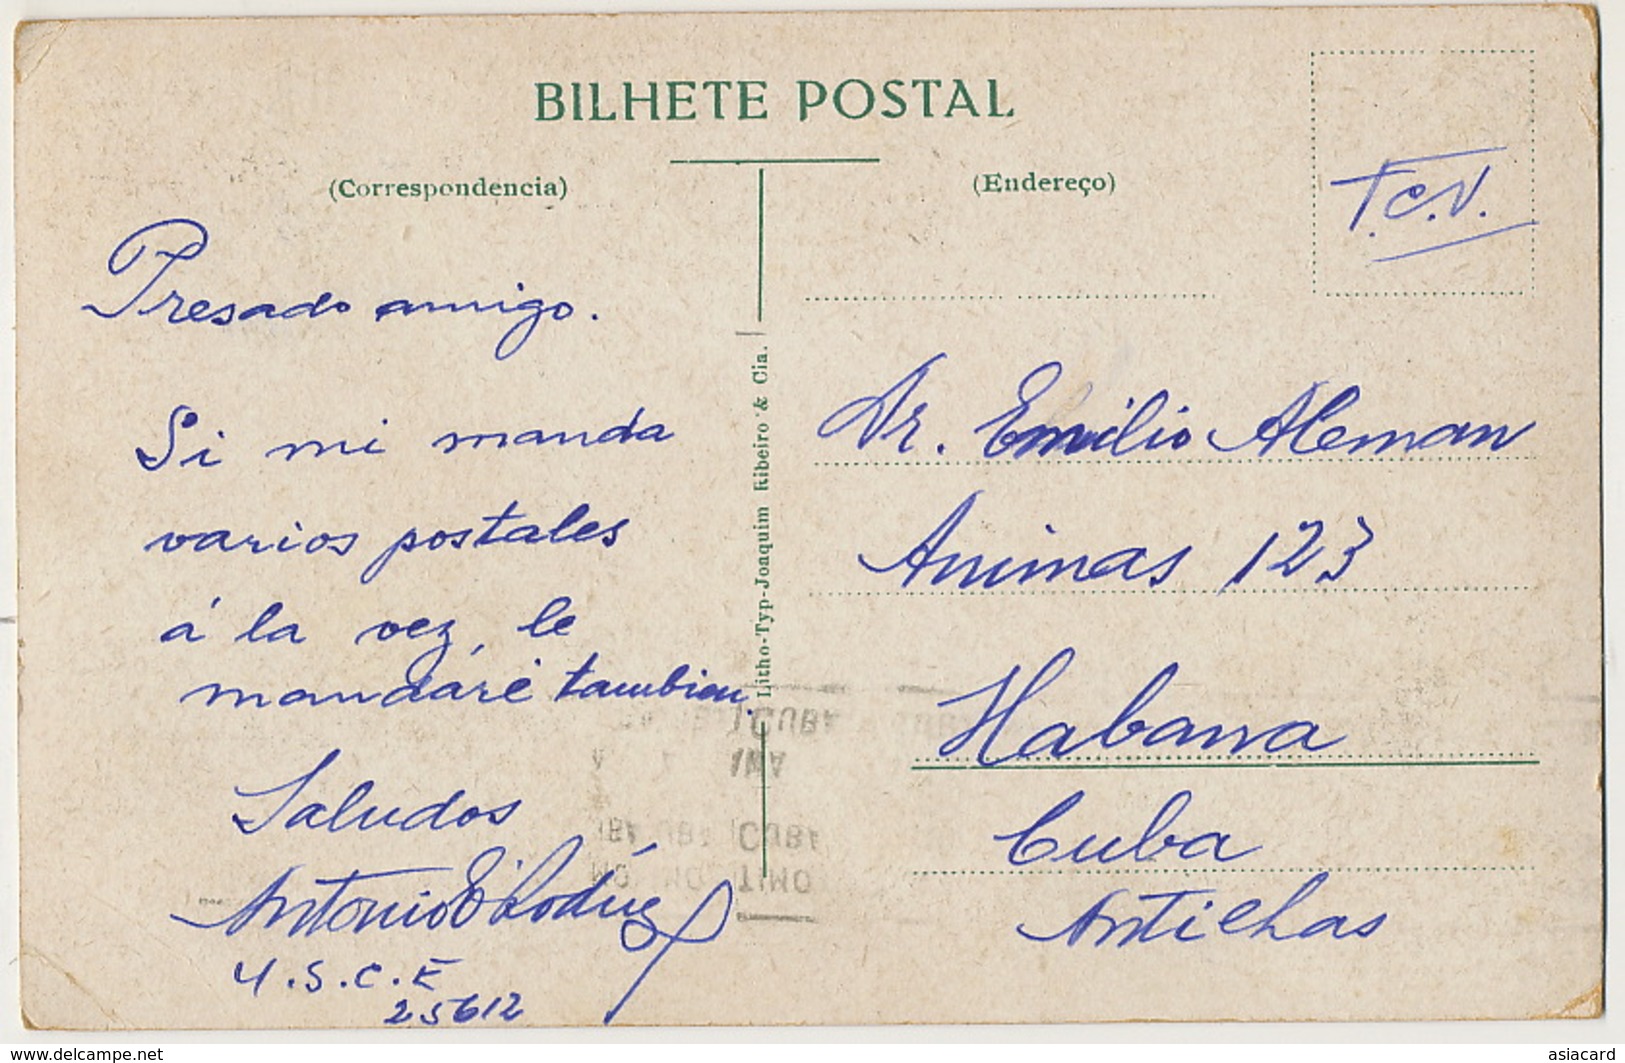 BILHETE POSTAL
(Correspondencia)
(Endereço)
T.C.V.
Presado amigo.
Si mi manda
varios postales
á la vez, le
mandáré tambien.
Saludos
Antonio
U.S.C.E
25612
Litho-Typ-Joaquim Ribeiro & Cia.
Dr. Emilio Aleman
Animas 123
Habana
Cuba
Antillas
CUBA
CUBA
delcampe.net
asiacard